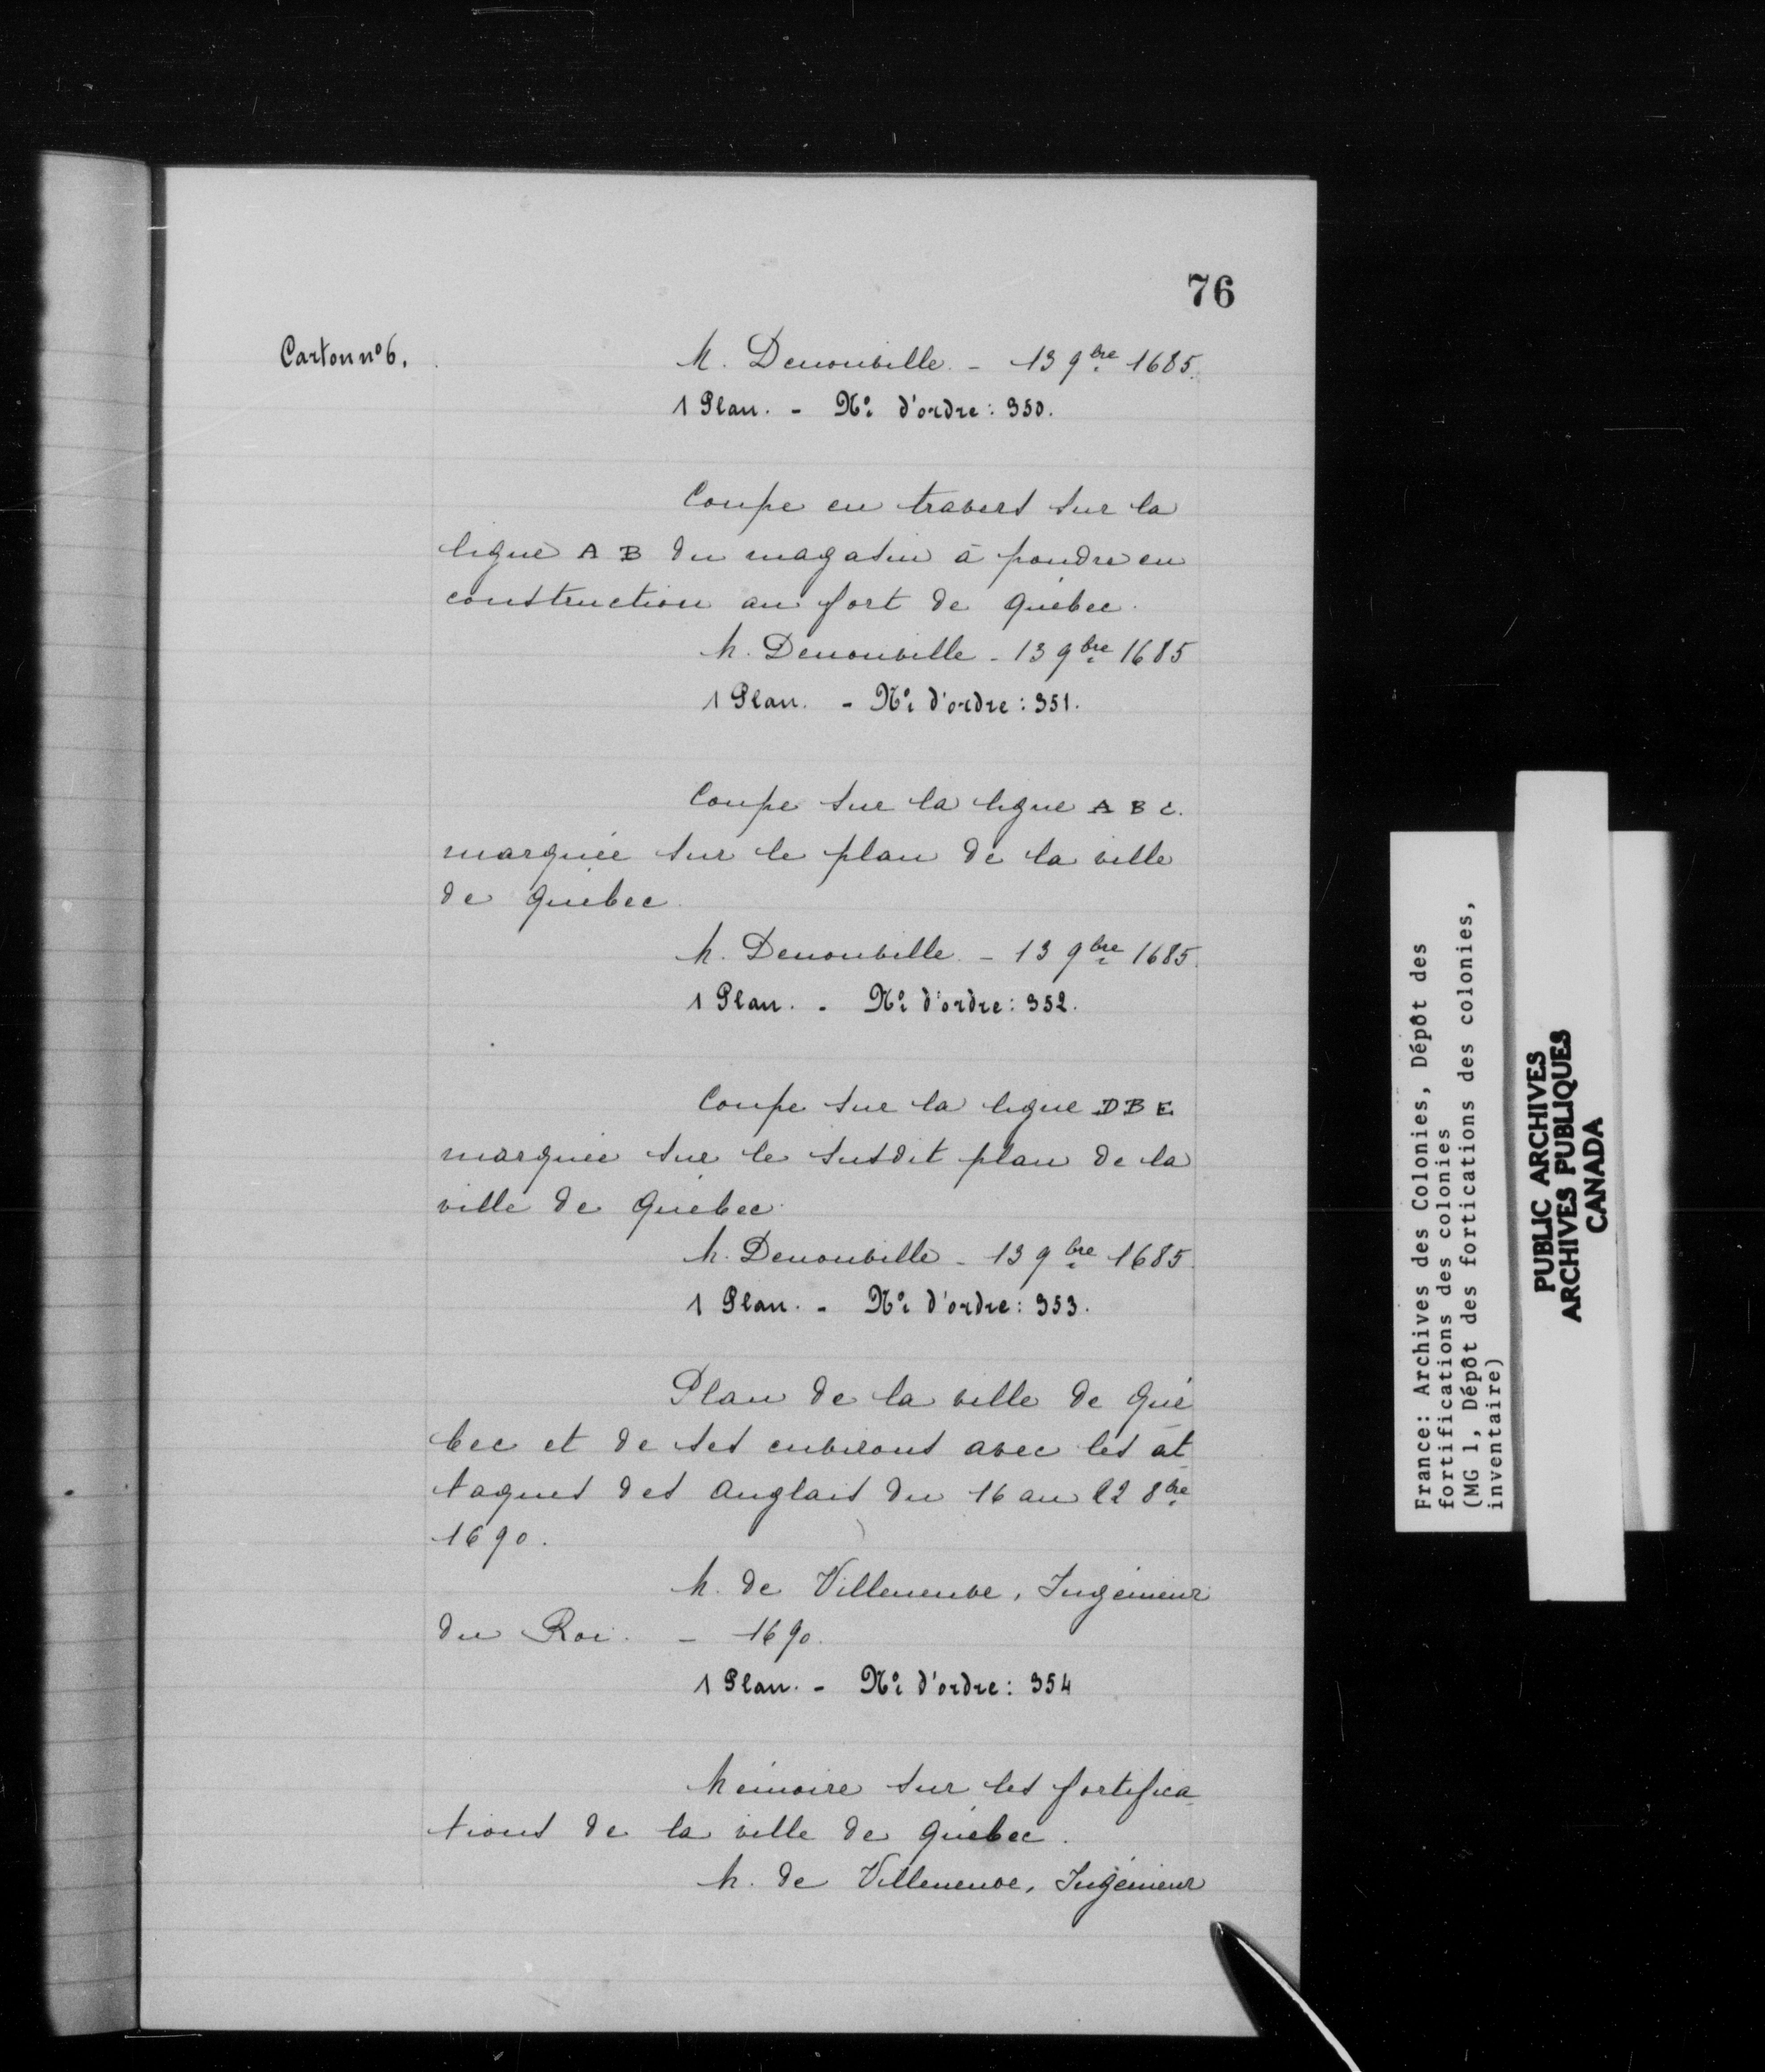 76
Carton nº 6.
M. Denonville. - 13 9bre 1685.
1 Plan. - Nº d'ordre : 350.
Coupe en travers sur la
ligne A B du magasin à poudre en
construction au fort de Québec.
M. Denonville - 13 9bre 1685
1 Plan. - Nº d'ordre : 351.
Coupe sur la ligne A B C.
marquée sur le plan de la ville
de Québec.
M. Denonville. - 13 9bre 1685.
1 Plan. - Nº d'ordre : 352.
Coupe sur la ligne D B E
marquée sur le susdit plan de la
ville de Québec.
M. Denonville - 13 9bre 1685.
1 Plan. - Nº d'ordre : 353.
Plan de la ville de Qué
bec et de ses environs avec les at
taques des Anglais du 16 au 22 8bre
1690.
M. de Villeneuve, Ingénieur
du Roi. - 1690.
1 Plan. - Nº d'ordre : 354
Mémoire sur les fortifica-
tions de la ville de Québec.
M. de Villeneuve, Ingénieur
France: Archives des Colonies, Dépôt des
fortifications des colonies
(MG 1, Dépôt des fortications des colonies,
inventaire)
PUBLIC ARCHIVES
ARCHIVES PUBLIQUES
CANADA